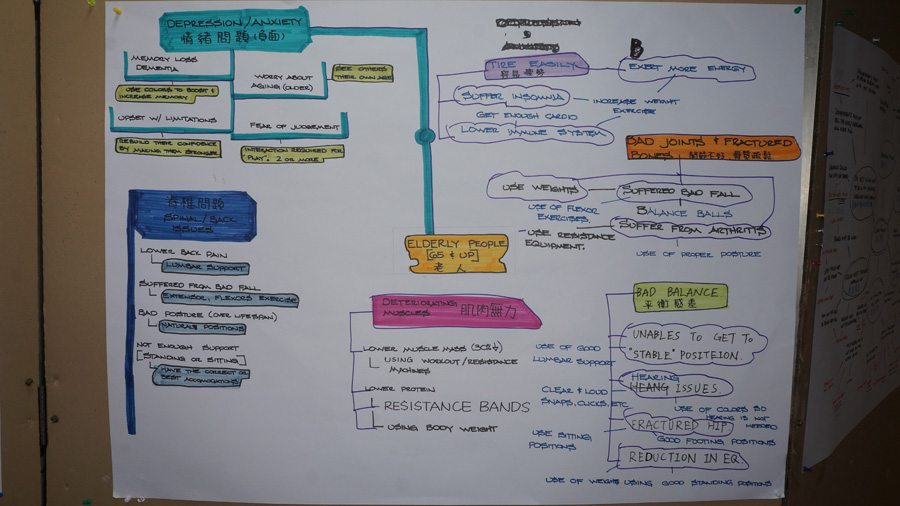 DEPRESSION/ANXIETY
情緒問題(負面)
MEMORY LOSS
DEMENTIA
USE COLORS TO BOOST &
INCREASE MEMORY
WORRY ABOUT
AGING (OLDER)
SEE OTHERS
THEIR OWN AGE
UPSET W/ LIMITATIONS
REBUILD THEIR CONFIDENCE
BY MAKING THEM STRONGER
FEAR OF JUDGEMENT
INTERACTION REQUIRED FOR
"PLAY". 2 OR MORE
脊椎問題
SPINAL/BACK
ISSUES
LOWER BACK PAIN
LUMBAR SUPPORT
SUFFERED FROM BAD FALL
EXTENSOR, FLEXORS EXERCISE
BAD POSTURE (OVER LIFESPAN)
NATURAL POSITIONS
NOT ENOUGH SUPPORT
[STANDING OR SITTING]
HAVE THE CORRECT OR
BEST ACCOMODATIONS
ELDERLY PEOPLE
[65 & UP]
老人
DETERIORATING
MUSCLES 肌肉無力
LOWER MUSCLE MASS
USING WORKOUT/RESISTANCE
MACHINES
LOWER PROTEIN
RESISTANCE BANDS
USING BODY WEIGHT
&
TIRE EASILY
容易疲勞
B
EXERT MORE ENERGY
SUFFER INSOMNIA
INCREASE WEIGHT
EXERCISE
GET ENOUGH CARDIO
LOWER IMMUNE SYSTEM
BAD JOINTS & FRACTURED
BONES
USE WEIGHTS
SUFFERED BAD FALL
USE OF FLEXOR
EXERCISES.
BALANCE BALLS
USE RESISTANCE
EQUIPMENT.
SUFFER FROM ARTHRITIS
USE OF PROPER POSTURE
BAD BALANCE
平衡感差
UNABLES TO GET TO
"STABLE" POSITEION.
USE OF GOOD
LUMBAR SUPPORT
HEARING
ISSUES
CLEAR & LOUD
SNAPS, CLICKS, ETC
USE OF COLORS SO
HEARING IS NOT
NEEDED
FRACTURED HIP
GOOD FOOTING POSITIONS
USE SITTING
POSITIONS
REDUCTION IN EQ.
USE OF WEIGHTS
USING GOOD STANDING POSITIONS